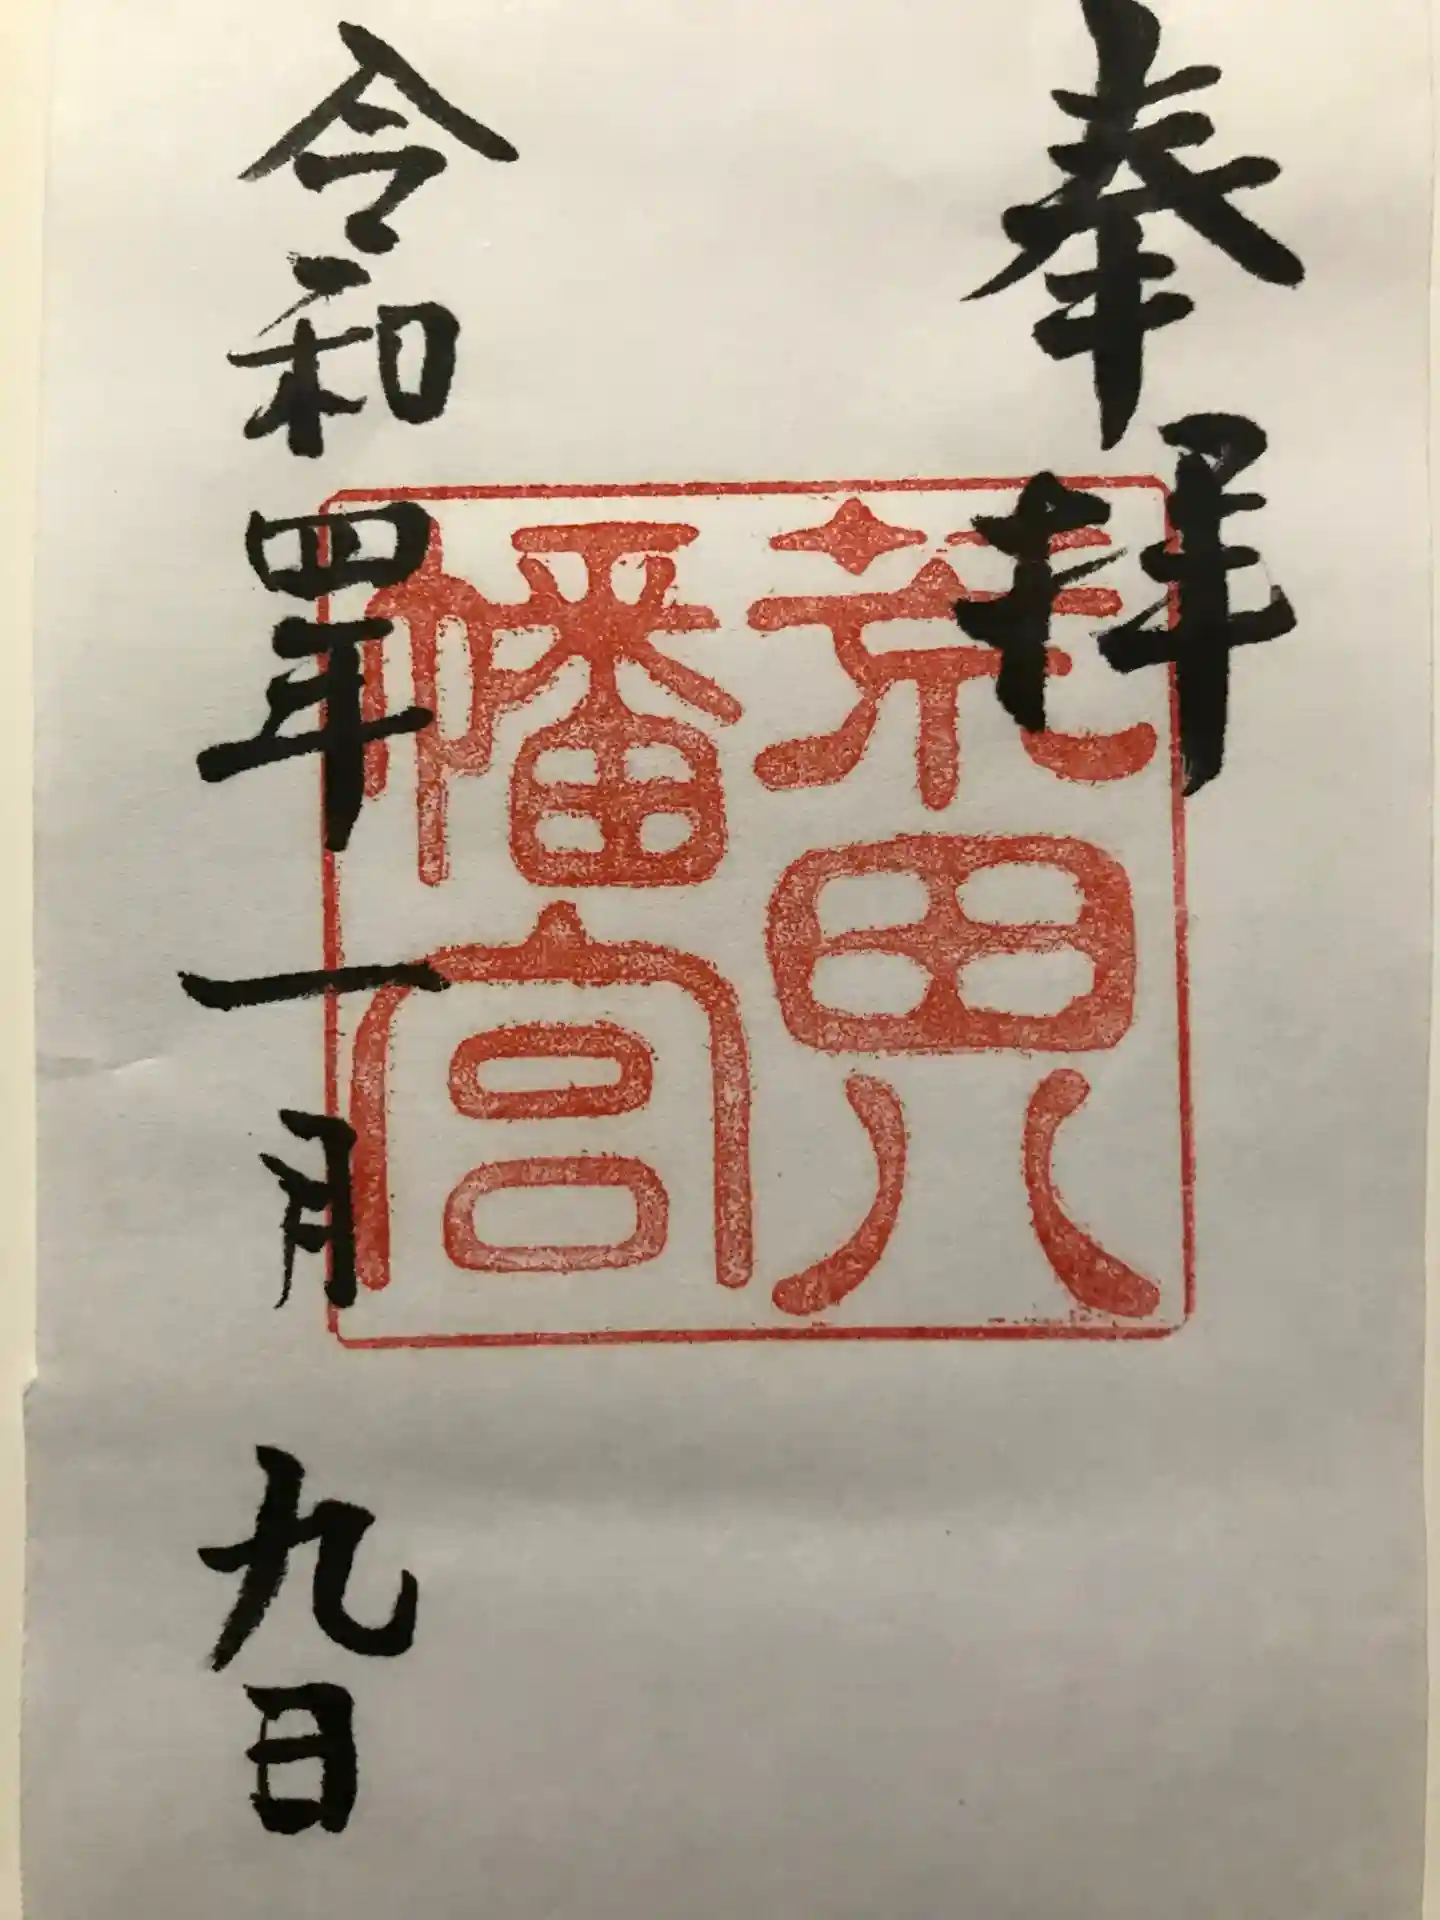 奉拝
荒田八
幡宮
令和四年一月九日